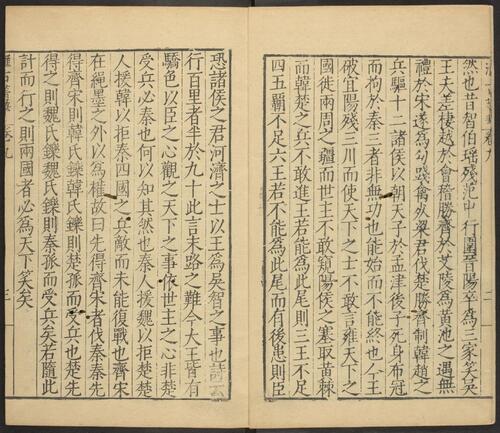 然也昔智伯瑤殘范中行圍晉陽卒為三家笑吳
王夫差棲越於會稽勝齊於艾陵為黃池之遇無
禮於宋遂為勾踐禽死梁君伐楚勝齊制韓趙之
兵驅十二諸侯以朝天子於孟津後子死身布冠
而拘於秦三者非無功也能始而不能終也今王
破宜陽殘三川而使天下之士不敢言雍天下之
國徙兩周之疆而世主不敢窺陽侯之塞取黃棘
而韓楚之兵不敢進王若能為此尾則三王不足
四五霸不足六王若不能為此尾而有後患則臣
恐諸侯之君河濟之士以王為吳智之事也詩云
行百里者半於九十此言末路之難今大王皆有
驕色以臣之心觀之天下之事依世主之心非楚
受兵必秦也何以知其然也秦人援魏以拒楚楚
人援韓以拒秦四國之兵敵而未能復戰也齊宋
在繩墨之外以為權故曰先得齊宋者伐秦秦先
得齊宋則韓氏鑠韓氏鑠則楚孤而受兵也楚先
得之則魏氏鑠魏氏鑠則秦孤而受兵矣若隨此
計而行之則兩國者必為天下笑矣
卷九
三